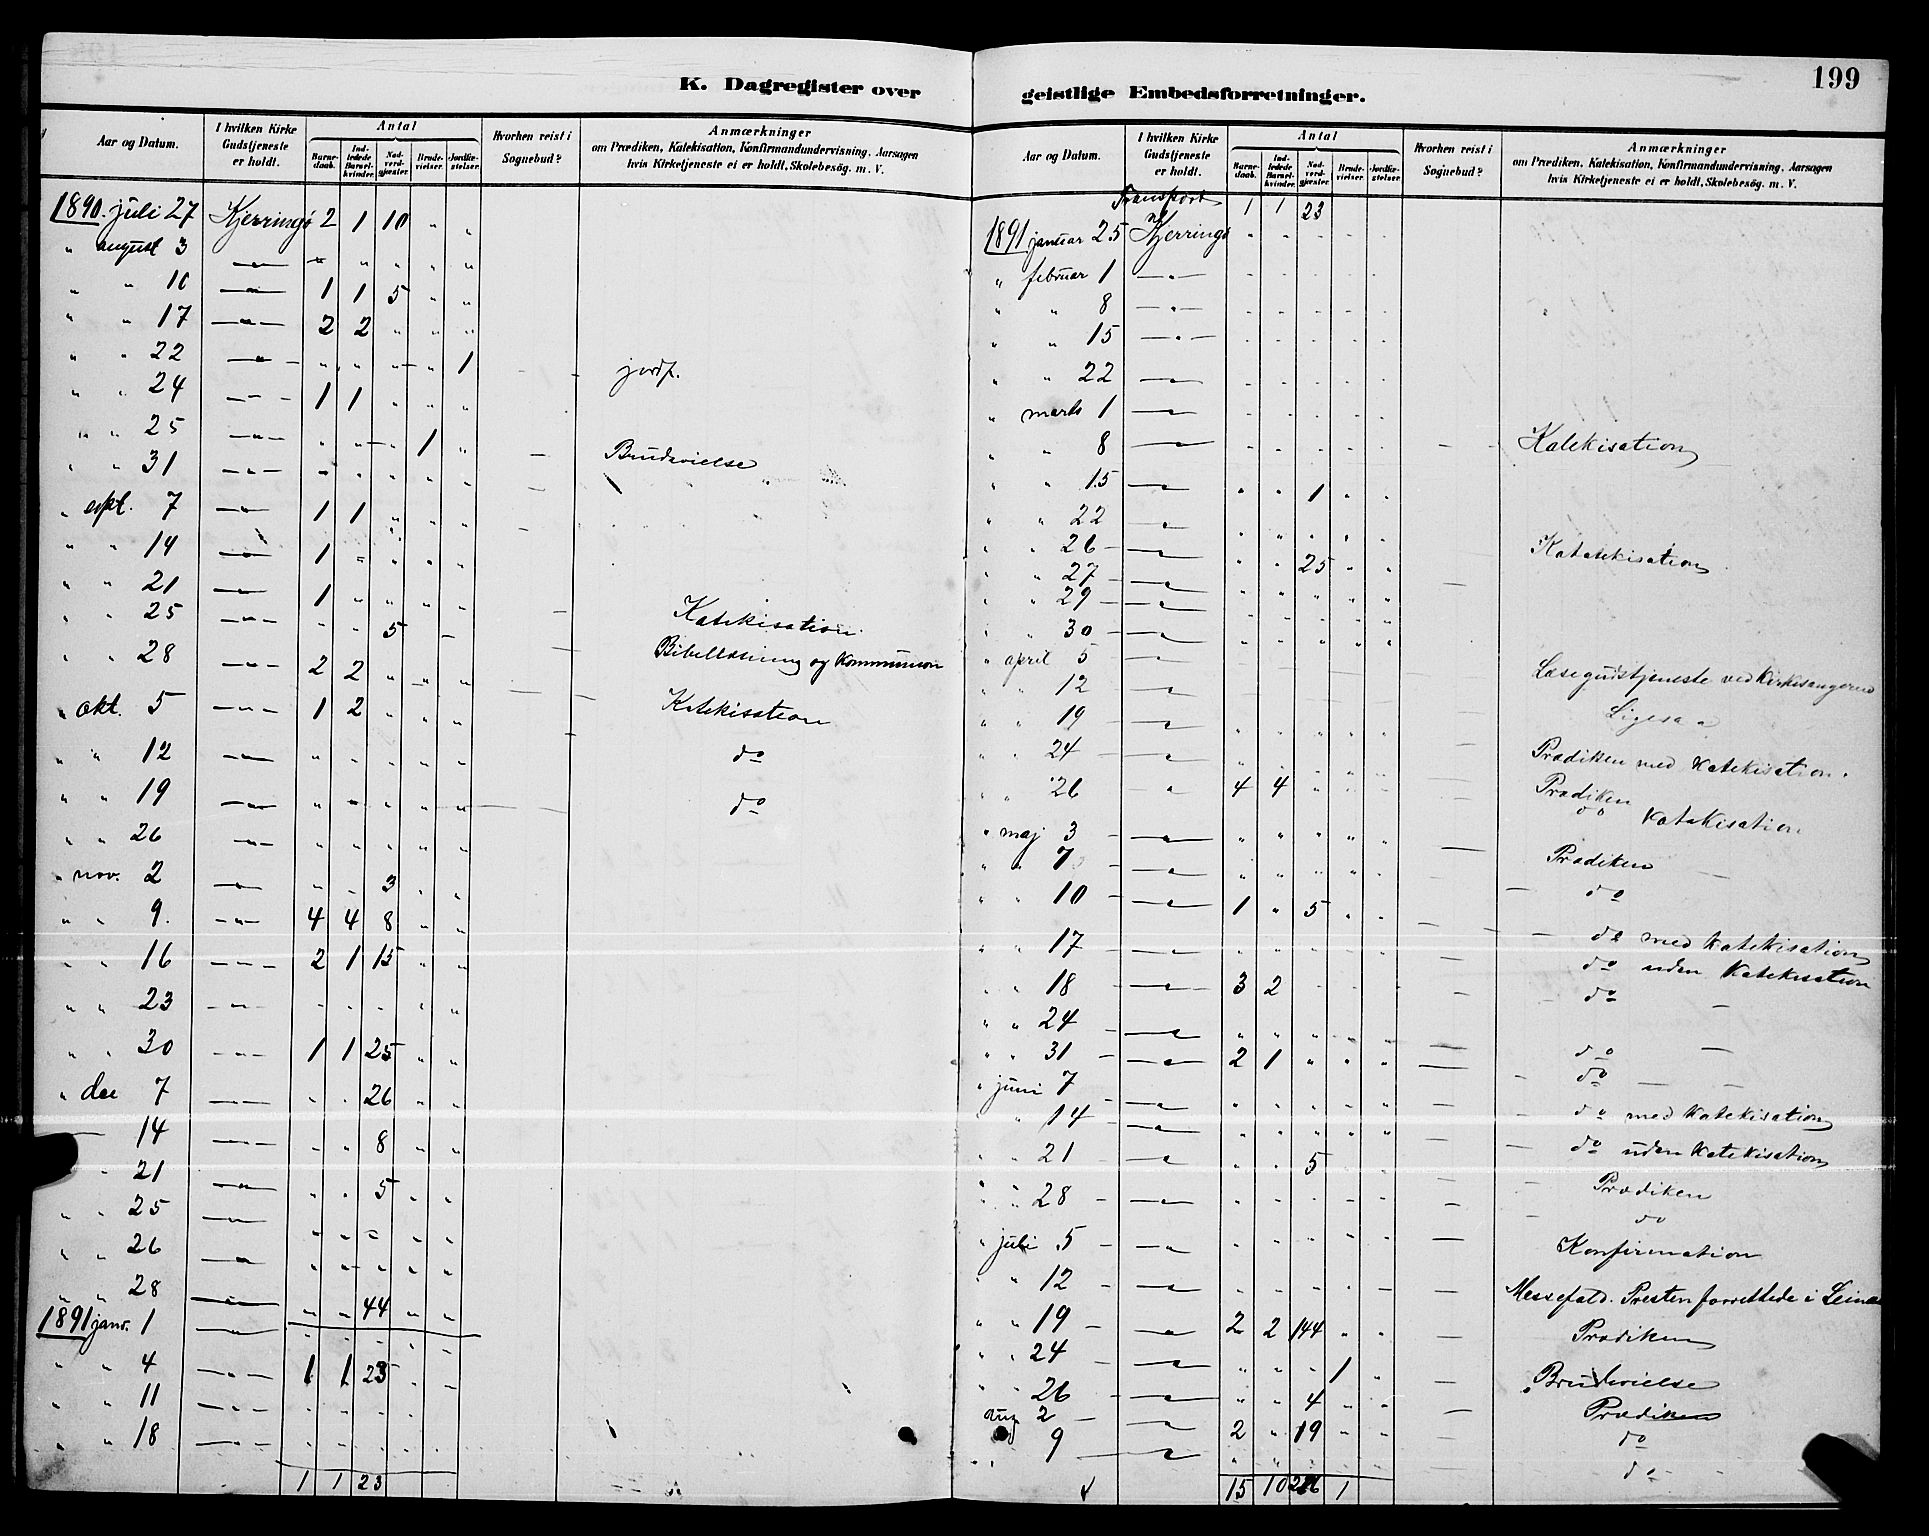 K. Dagregister over geistlige Embedsforretninger.
199
Aar og Datum. | I hvilken Kirke Gudstjeneste er holdt. | Antal | Barnedaab. | Indledede Barselkvinder. | Nadverdgjæster. | Brudevielser. | Jordfæstelser. | Hvorhen reist i Sognebud? | Anmærkninger om Prædiken, Katekisation, Konfirmandundervisning, Aarsagen hvis Kirketjeneste ei er holdt, Skolebesøg. m. V.
1890. juli 27 Kjerringø 2 1 10 " "
" august 3 —"— " " " " "
" " 10 —"— 1 1 5 " "
" " 17 —"— 2 2 " " "
" " 22 —"— " " " " 1 jordf.
" " 24 —"— 1 1 " " "
" " 25 —"— " " " 1 " Brudevielse
" " 31 —"— " " " " "
" sept. 7 —"— 1 1 " " "
" " 14 —"— 1 " " " "
" " 21 —"— 1 " " " " Katekisation
" " 25 —"— " " 5 " Bibellæsning og kommunion
" " 28 —"— 2 2 " " " Katekisation
" okt. 5 —"— 1 2 " " " do
" " 12 —"— " " " " " do
" " 19 —"— " " " " "
" " 26 —"— " " " " "
" nov. 2 —"— " " 3 " "
" " 9. —"— 4 4 8 " "
" " 16 —"— 2 1 15 " "
" " 23 —"— " " " " "
" " 30 —"— 1 1 25 " "
" dec 7 —"— " " 26 " "
14 —"— " " 8 " "
" 21 —"— " " 5 " "
" " 25 —"— " " " " "
" " 26 —"— " " " " "
" " 28 —"— " " 44 " "
1891 janr. 1 —"— " " " " "
" " 4 —"— 1 1 23 " "
" " 11 —"— " " " " "
" " 18 —"— " " " " "
1 1 23
Aar og Datum. | I hvilken Kirke Gudstjeneste er holdt. | Antal | Barnedaab. | Indledede Barselkvinder. | Nadverdgjæster. | Brudevielser. | Jordfæstelser. | Hvorhen reist i Sognebud? | Anmærkninger om Prædiken, Katekisation, Konfirmandundervisning, Aarsagen hvis Kirketjeneste ei er holdt, Skolebesøg. m. V.
Transport 1 1 23
1891 januar 25 Kjerringø " " " " "
" februar 1 —"— " " " " "
" " 8 —"— " " " " "
" " 15 —"— " " " " "
" " 22 —"— " " " " "
" marts 1 —"— " " " " "
" " 8 —"— " " " " " Katekisation
" " 15 —"— " " 1 " "
" " 22 —"— " " " " "
" " 26 —"— " " 25 " " Katatekisation
" " 27 —"— " " " " "
" " 29 —"— " " " " "
" " 30 —"— " " " " "
" april 5 —"— Læsegudstjeneste ved Kirkesangeren
" " 12 —"— Ligesaa
" " 19 —"— " " " " " Prædiken med katekisation.
" " 24 —"— " " " " " Prædiken
" " 26 —"— 4 4 " " " do katekisation
" maj 3 —"— " " " " " Prædiken
" " 7 —"— " " " " " do
" " 10 —"— 1 " 5 " " do med katekisation
" " 17 —"— " " " " " do uden katekisation
" " 18 —"— 3 2 " " " do
" " 24 —"— " " " " " do
" " 31 —"— 2 1 " " " do
" juni 7 —"— " " " " " do med katekisation
" 14 —"— " " " " " do uden katekisation
" " 21 —"— " " 5 " Prædiken
" " 28 —"— " " " " " do
" juli 5 —"— " " " " " Konfirmation
" " 12 —"— " " " " " Messefald. Presten forrettede i Leines
" " 19 —"— 2 2 144 " " Prædiken
" " 24 —"— " " " 1 " Brudevielse
" " 26 —"— " " 4 " " Prædiken
aug 2 —"— 2 " 19 " " do
" " 9 —"— " " " " " do
15 10 226 1